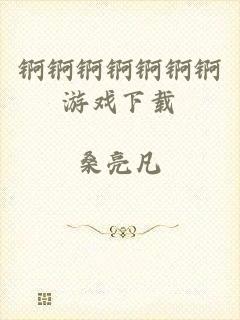 锕锕锕锕锕锕锕
游戏下载
桑亮凡